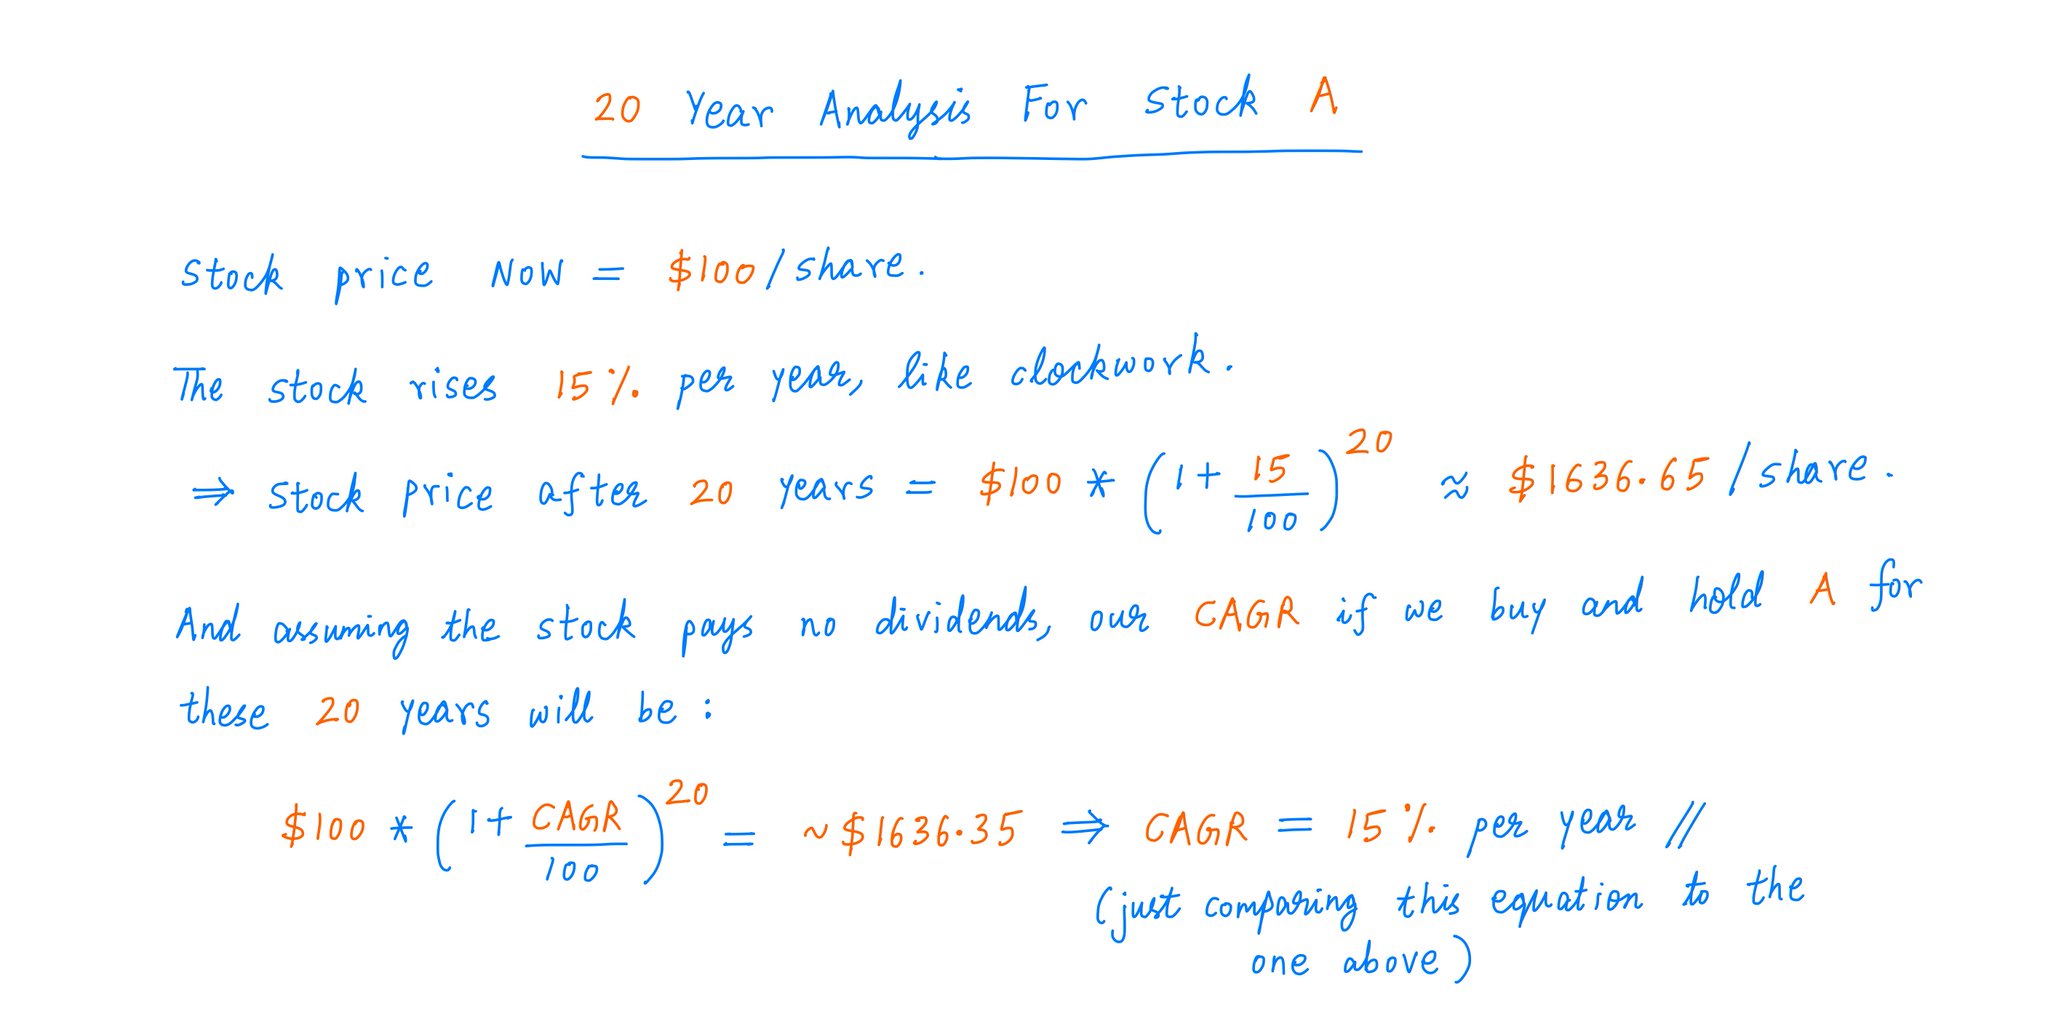 20 Year Analysis For Stock A
Stock price NOW = $100/share.
The stock rises 15% per year, like clockwork.
⇒ Stock price after 20 years = $100 * (1 + 15/100)^20 ≈ $1636.65/share.
And assuming the stock pays no dividends, our CAGR if we buy and hold A for
these 20 years will be:
$100 * (1 + CAGR/100)^20 = ~$1636.35 ⇒ CAGR = 15% per year //
(just comparing this equation to the
one above)